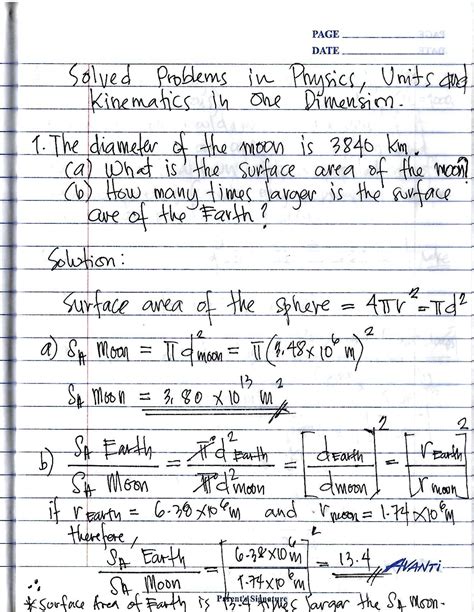 PAGE
DATE
Solved Problems in Physics, Units and
Kinematics in One Dimension.
1. The diameter of the moon is 3840 km.
(a) What is the surface area of the moon?
(b) How many times larger is the surface
are of the Earth?
Solution:
Surface area of the sphere = 4πr² = πd²
a) SA Moon = πd²moon = π(3.48x10⁶ m)²
SA Moon = 3.80 x 10¹³ m²
b) SA Earth / SA Moon = πd²Earth / πd²moon = [dEarth / dmoon]² = [rEarth / rmoon]²
if rEarth = 6.38x10⁶m and rmoon = 1.74x10⁶m
therefore,
SA Earth / SA Moon = [6.38x10⁶m / 1.74x10⁶m]² = 13.4 AVANTI
Parent's Signature
*Surface Area of Earth is 13.4 times larger the SA Moon.